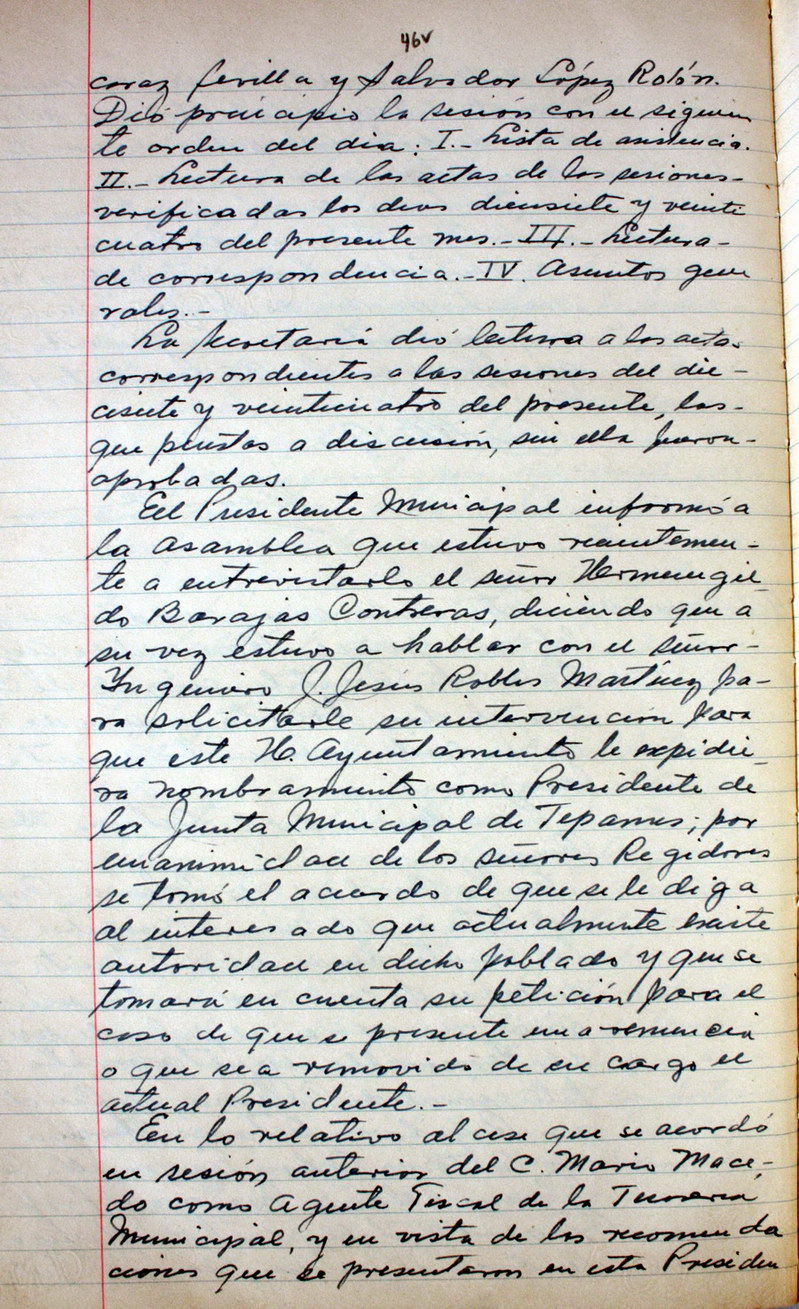 46v
caraz Sevilla y Salvador López Rolón.
Dió principio la sesión con el siguien
te orden del dia: I.- Lista de asistencia.
II.- Lectura de las actas de las sesiones-
verificadas los dias diecisiete y veinte
cuatro del presente mes.- III.- Lectura-
de correspondencia.- IV. Asuntos gene
rales.-
La Secretaría dió lectura a las actas
correspondientes a las sesiones del die-
cisiete y veinticuatro del presente, las-
que puestas a discusión, sin ella fueron-
aprobadas.
El Presidente Municipal informó a
la asamblea que estuvo recientemen-
te a entrevistarlo el señor Hermenegil
do Barajas Contreras, diciendo que a
su vez estuvo a hablar con el señor-
Ingeniero J. Jesús Robles Martínez pa-
ra solicitarle su intervención para
que este H. Ayuntamiento le expidie-
ra nombramiento como Presidente de
la Junta Municipal de Tepames; por
unanimidad de los señores Regidores
se tomó el acuerdo de que se le diga
al interesado que actualmente existe
autoridad en dicho poblado y que se
tomará en cuenta su petición para el
caso de que se presente una renuncia
o que sea removido de su cargo el
actual Presidente.-
En lo relativo al cese que se acordó
en sesión anterior del C. Mario Mace-
do como Agente Fiscal de la Tesorería
Municipal, y en vista de las recomenda
ciones que se presentaron en esta Presiden